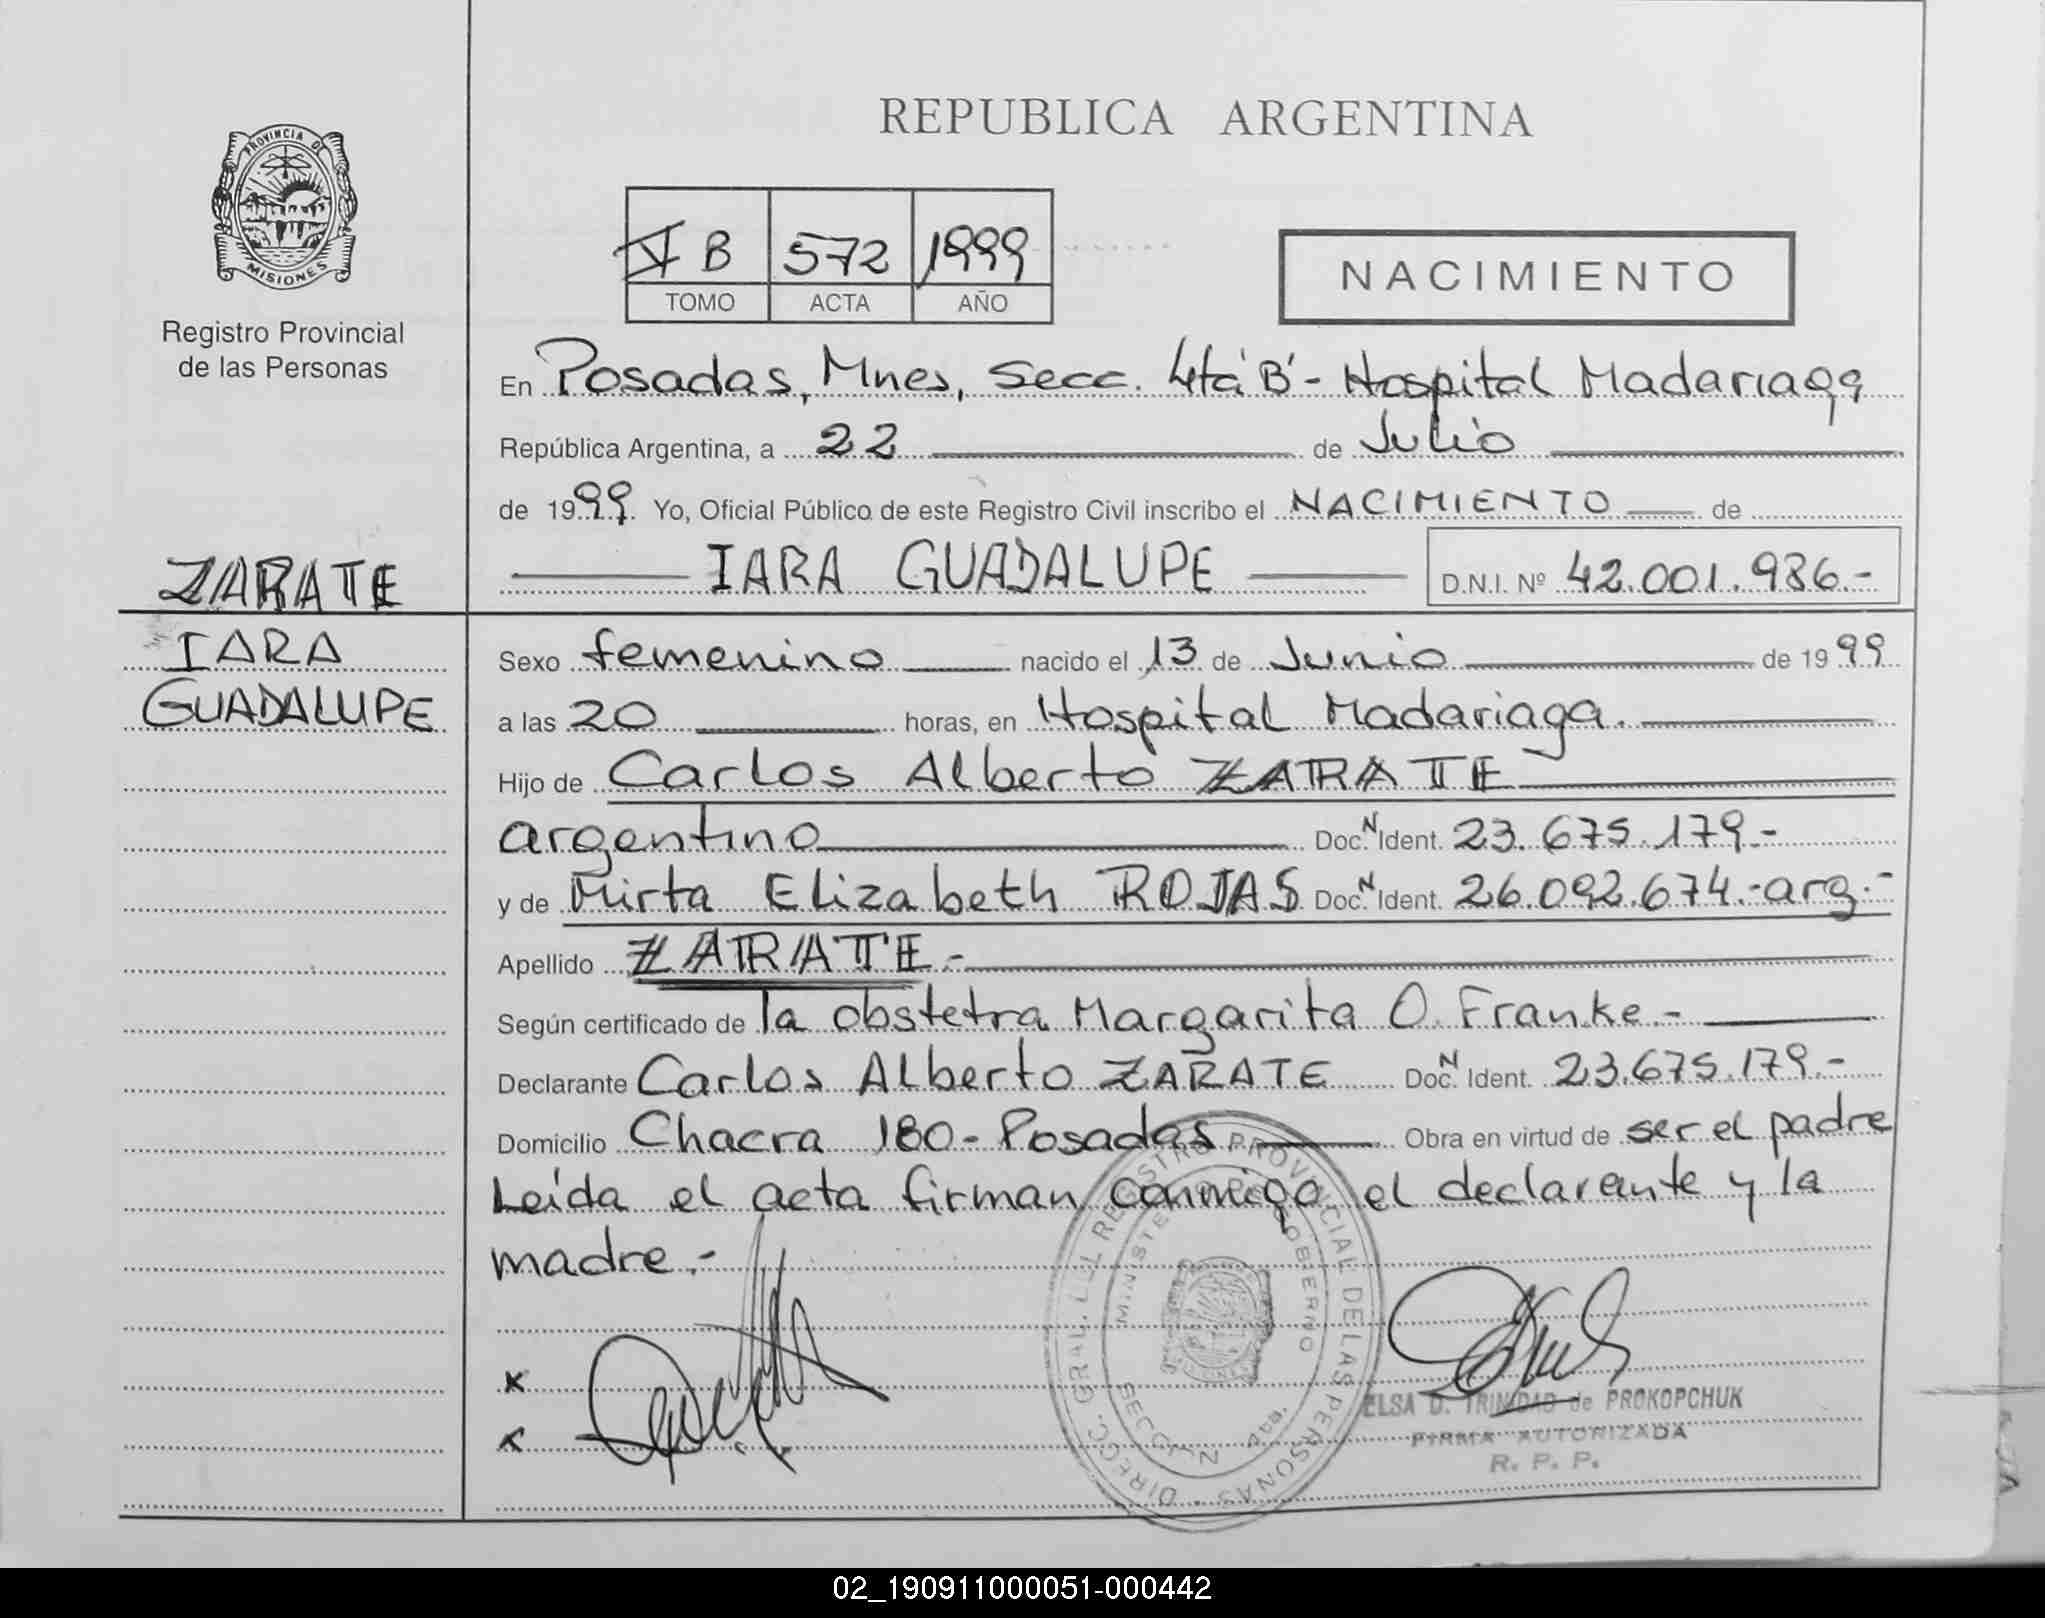 REPUBLICA ARGENTINA
PROVINCIA DE
MISIONES
Registro Provincial
de las Personas
V B 572 1999
TOMO ACTA AÑO
NACIMIENTO
En Posadas, Mnes, Secc. 4ta B - Hospital Madariaga
República Argentina, a 22 de Julio
de 1999. Yo, Oficial Público de este Registro Civil inscribo el NACIMIENTO de
IARA GUADALUPE D.N.I. Nº 42.001.986.-
ZARATE
IARA
GUADALUPE
Sexo femenino nacido el 13 de Junio de 1999
a las 20 horas, en Hospital Madariaga.
Hijo de Carlos Alberto ZARATE
argentino Doc. N Ident. 23.675.179.-
y de Mirta Elizabeth ROJAS Doc. N Ident. 26.092.674.-arg.-
Apellido ZARATE.-
Según certificado de la obstetra Margarita O. Franke.-
Declarante Carlos Alberto ZARATE Doc. N Ident. 23.675.179.-
Domicilio Chacra 180- Posadas Obra en virtud de ser el padre
Leída el acta firman conmigo el declarante y la
madre.-
DIRECC. GRAL. DEL REGISTRO PROVINCIAL DE LAS PERSONAS
MINISTERIO DE GOBIERNO
SECCION 4ta.
ELSA D. TRINIDAD de PROKOPCHUK
FIRMA AUTORIZADA
R. P. P.
02_190911000051-000442